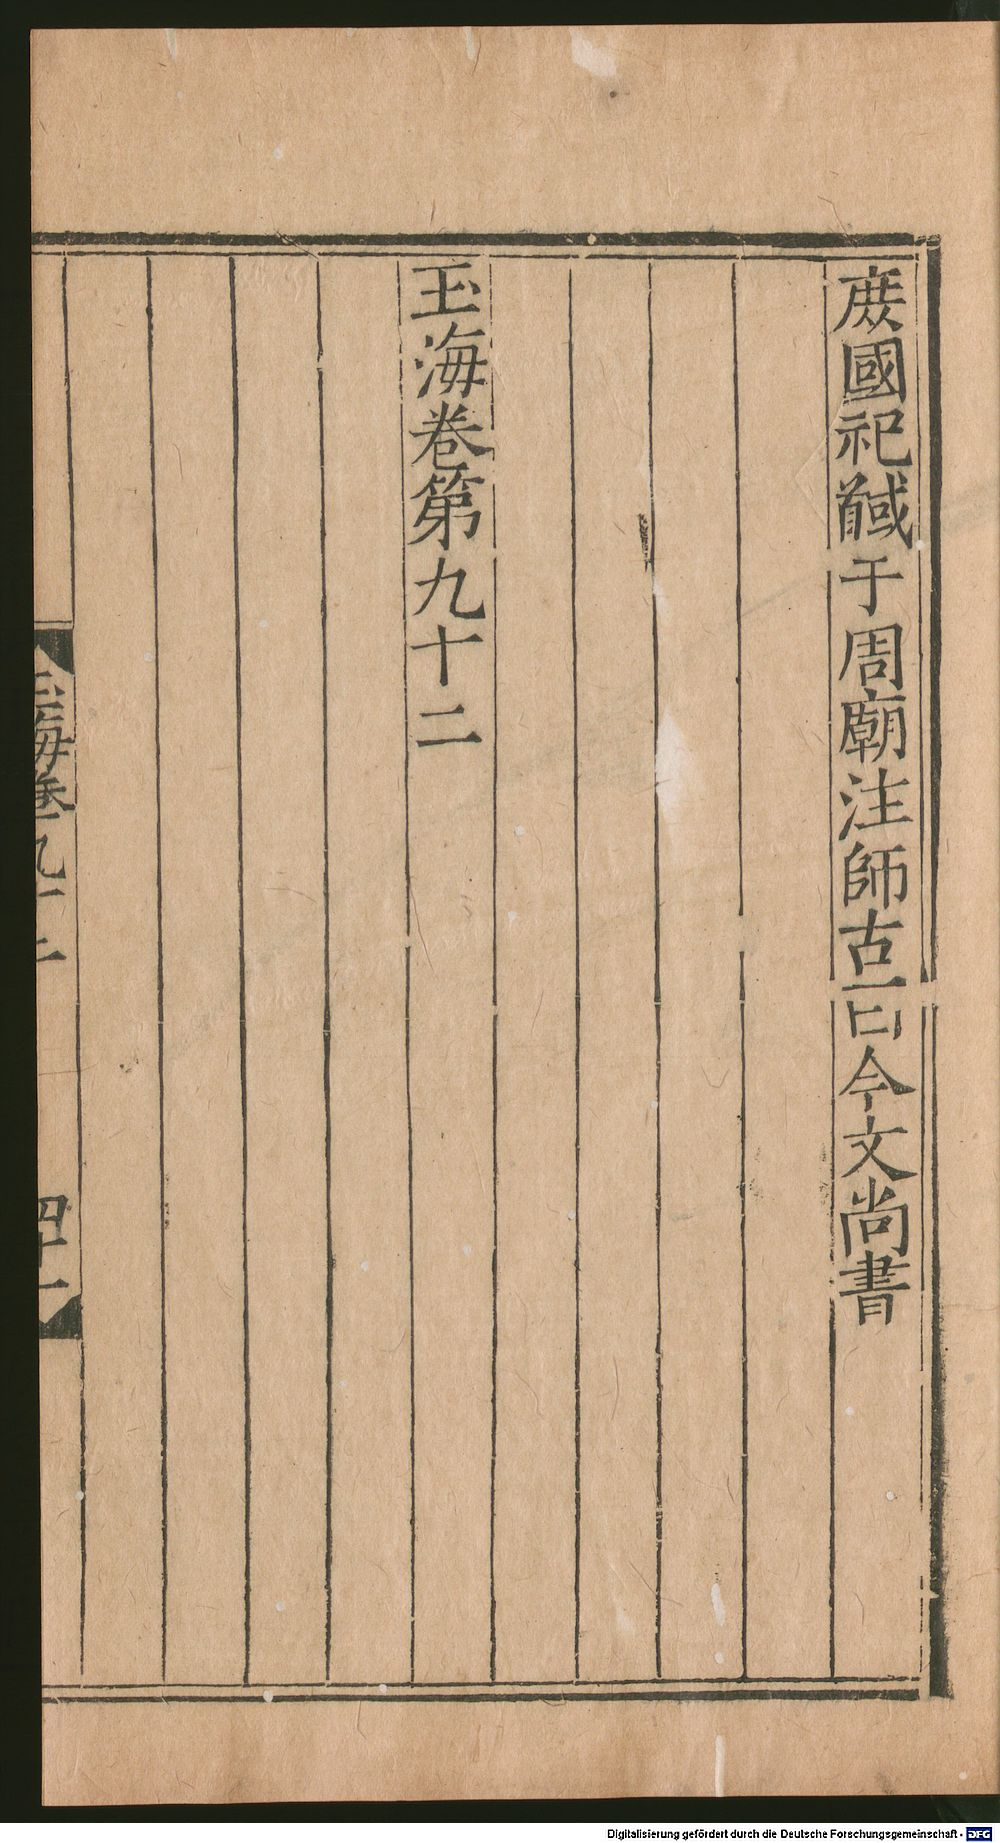 庻國祀馘于周廟注師古曰今文尚書
玉海卷第九十二
玉海卷九十二
四十一
Digitalisierung gefördert durch die Deutsche Forschungsgemeinschaft - DFG